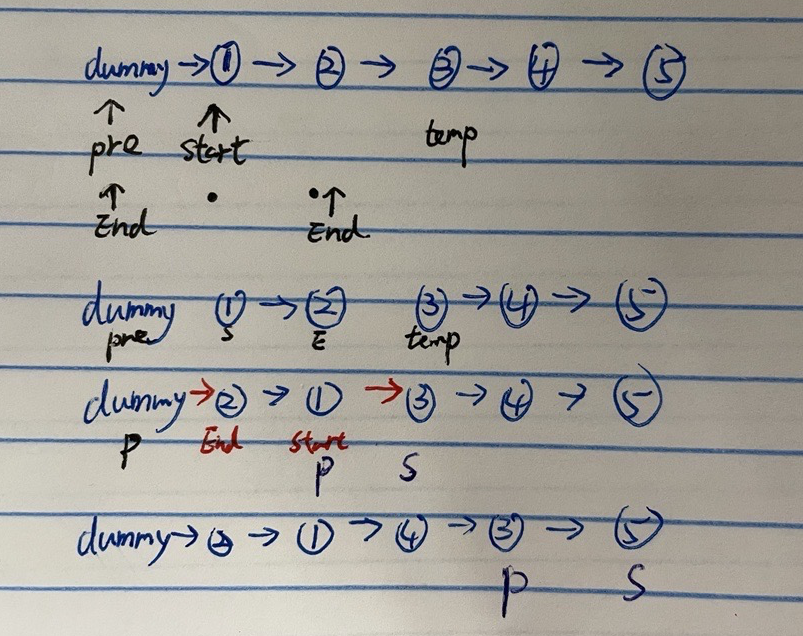 dummy → ① → ② → ③ → ④ → ⑤
↑ ↑
pre start temp
↑ • •↑
End End
dummy ① → ② ③ → ④ → ⑤
pre S E temp
dummy → ② → ① → ③ → ④ → ⑤
P End start
P S
dummy → ② → ① → ④ → ③ → ⑤
P S